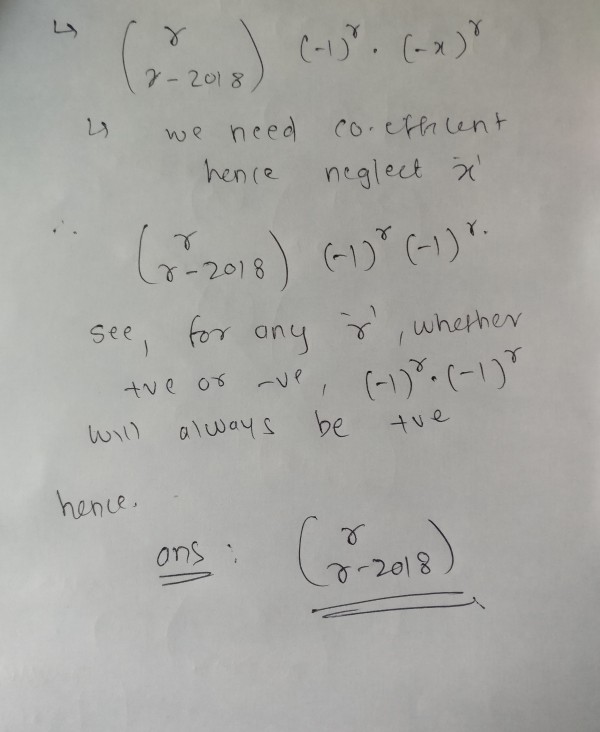 ↳ (r r-2018) (-1)^r . (-x)^r
↳ we need co.efficient
hence neglect 'x'
∴ (r r-2018) (-1)^r (-1)^r.
see, for any 'r', whether
+ve or -ve, (-1)^r . (-1)^r
will always be +ve
hence.
ans : (r r-2018)